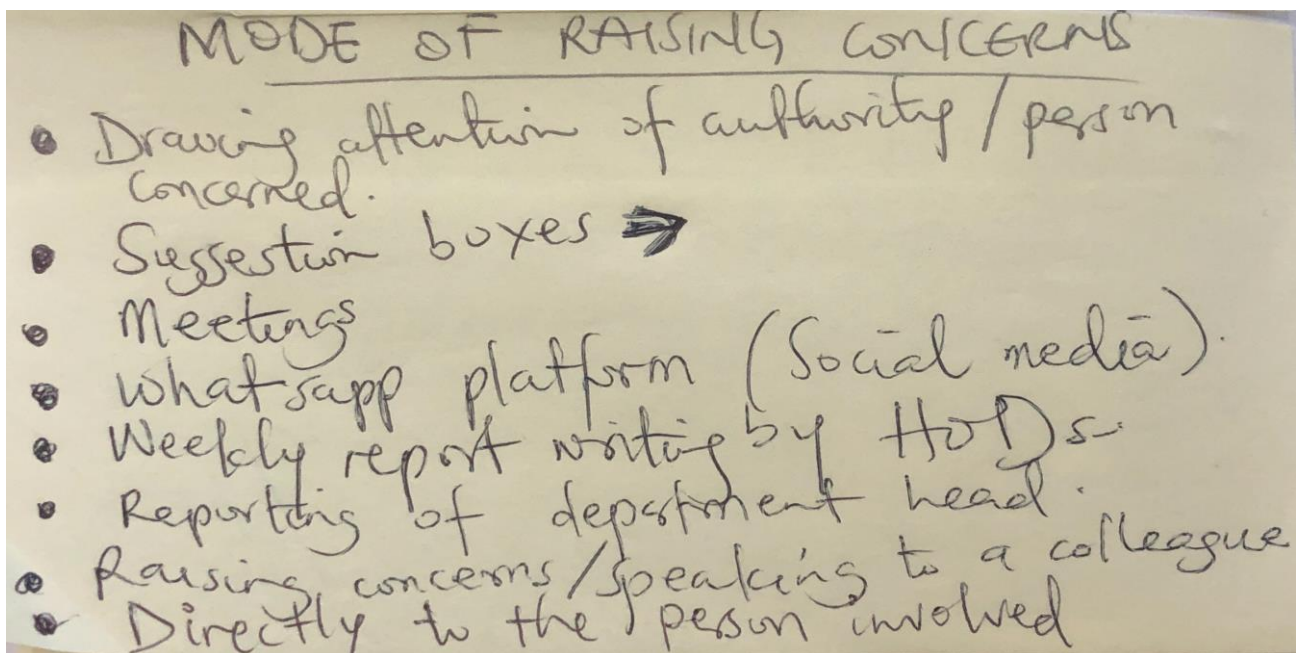 MODE OF RAISING CONCERNS
• Drawing attention of authority / person
concerned.
• Suggestion boxes ➔
• Meetings
• Whatsapp platform (Social media).
• Weekly report writing by HODs.
• Reporting of department head.
• Raising concerns/speaking to a colleague
• Directly to the person involved